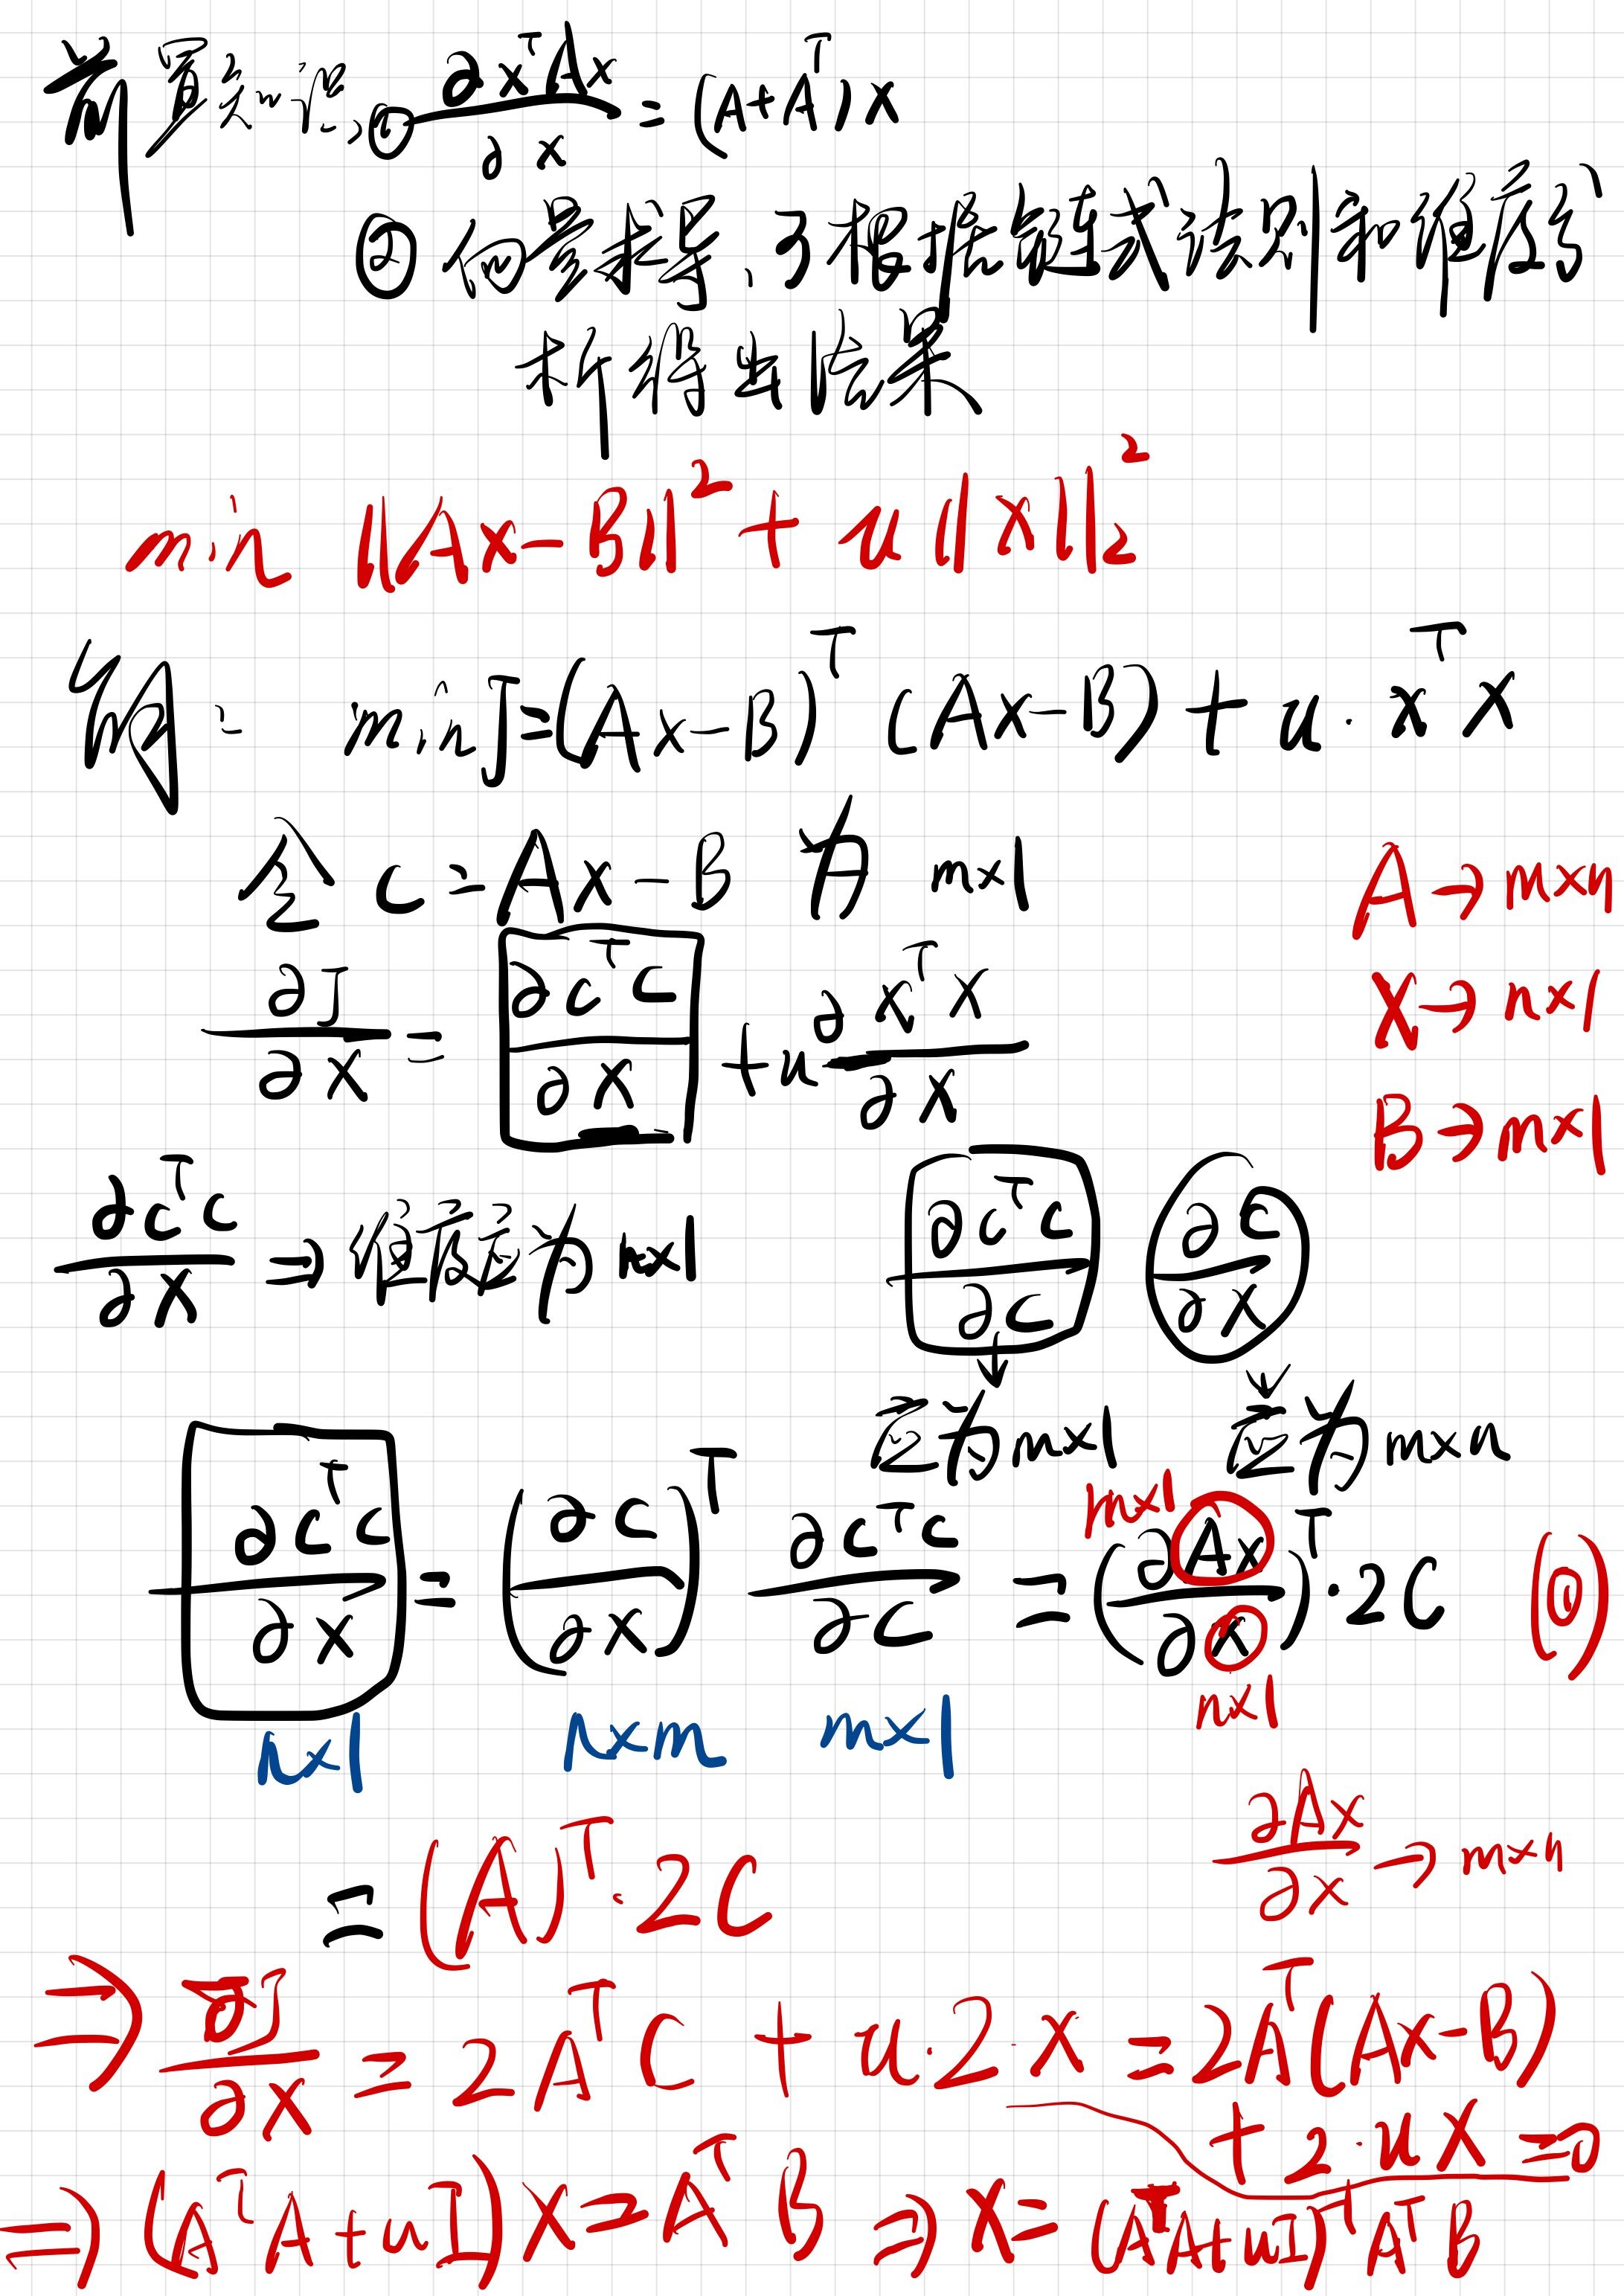 前置知识,① ∂xᵀAx/∂x = (A+Aᵀ)x
② 向量求导、可根据链式法则和维度分
析得出结果
min ||Ax-B||² + u||x||₂²
解: min J=(Ax-B)ᵀ(Ax-B)+u·xᵀx
令 C=Ax-B 为 m×1
A→m×n
∂J/∂x = ∂CᵀC/∂x + u ∂xᵀx/∂x
X→n×1
B→m×1
∂CᵀC/∂x ⇒ 维度应为 n×1
∂CᵀC/∂C ∂C/∂x
应为m×1 应为m×n
∂CᵀC/∂x = (∂C/∂x)ᵀ ∂CᵀC/∂C = (∂Ax/∂x)ᵀ·2C
m×1
n×1
n×1 n×m m×1
∂Ax/∂x → m×n
= (A)ᵀ·2C
⇒ ∂J/∂x = 2AᵀC + u·2·x = 2Aᵀ(Ax-B)
+2·ux=0
⇒ (AᵀA+uI)x=AᵀB ⇒ x=(AᵀA+uI)⁻¹AᵀB